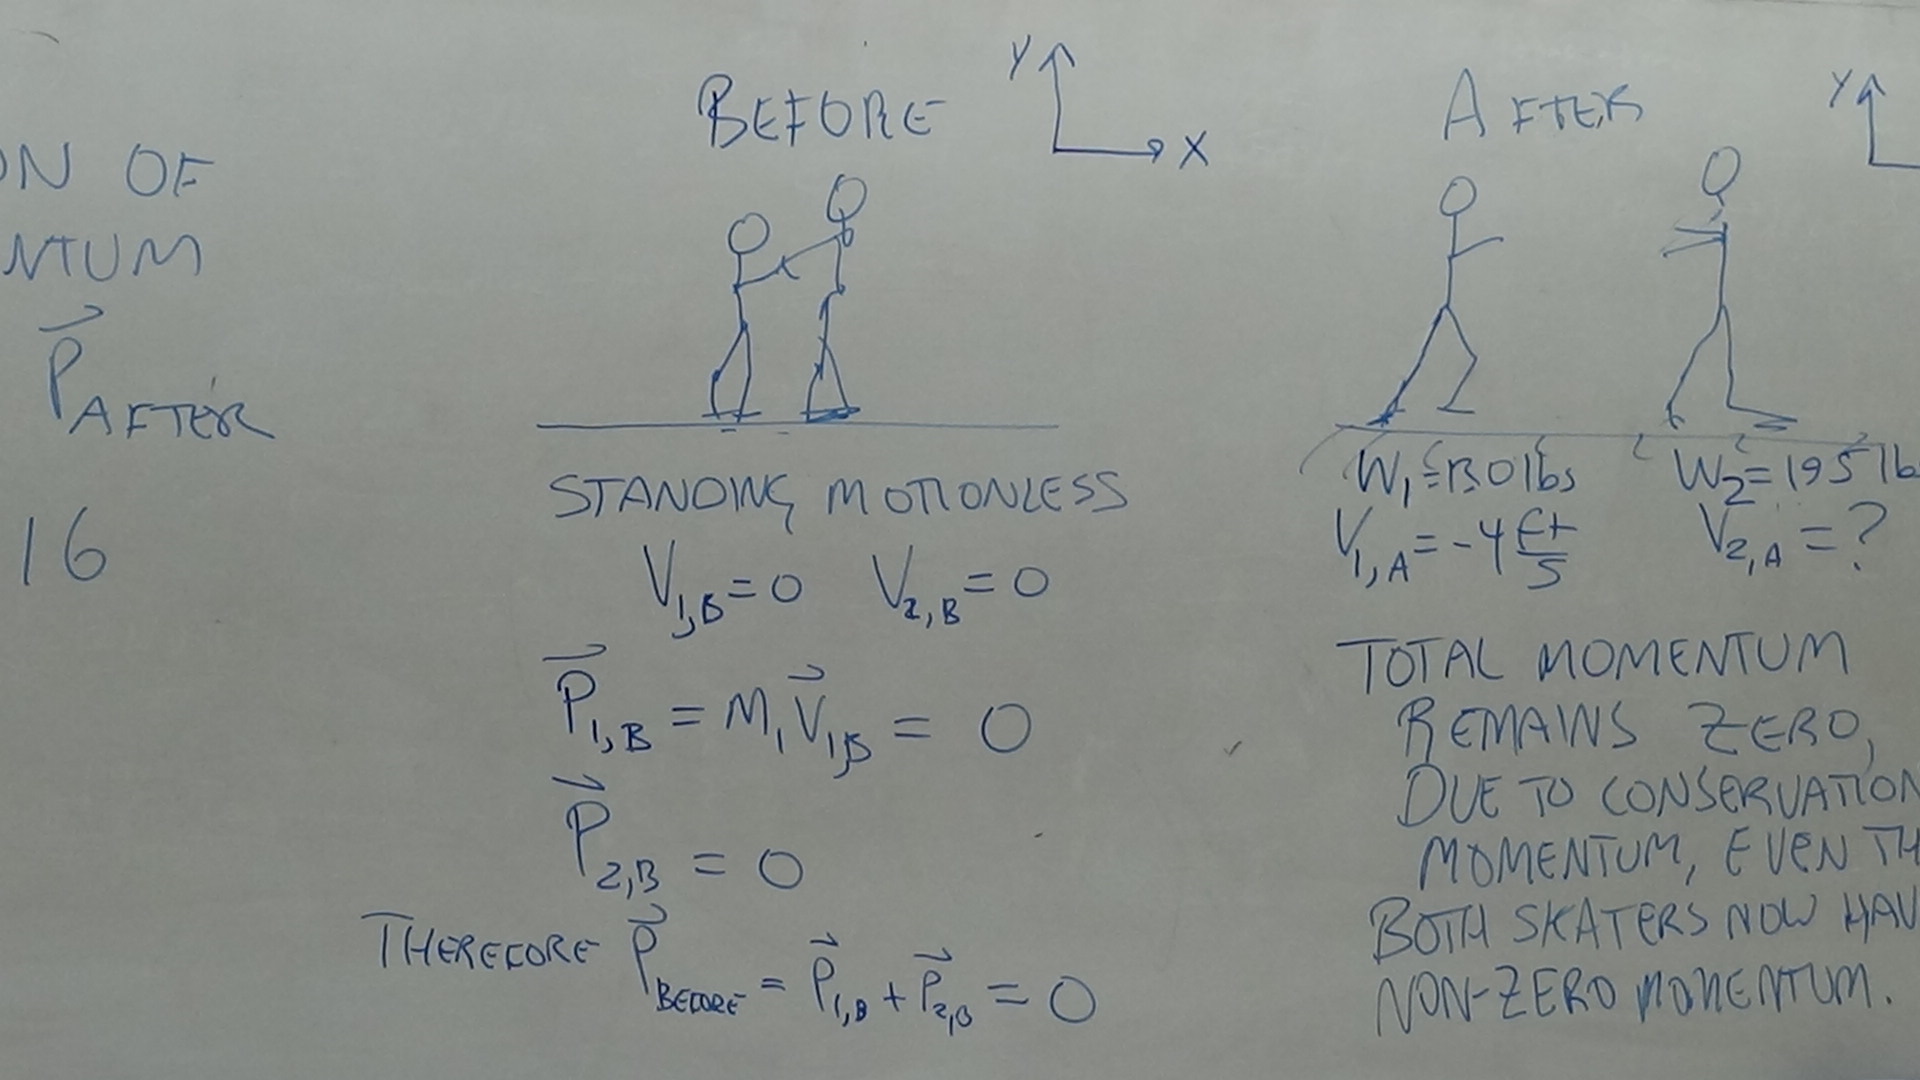 ON OF
NTUM
P AFTER
16
BEFORE
Y
X
STANDING MOTIONLESS
V1,B = 0 V2,B = 0
P1,B = M1 V1,B = 0
P2,B = 0
THEREFORE P BEFORE = P1,B + P2,B = 0
AFTER
Y
W1 = 130 lbs W2 = 195 lb
V1,A = -4 ft/s V2,A = ?
TOTAL MOMENTUM
REMAINS ZERO,
DUE TO CONSERVATION
MOMENTUM, EVEN TH
BOTH SKATERS NOW HAV
NON-ZERO MOMENTUM.